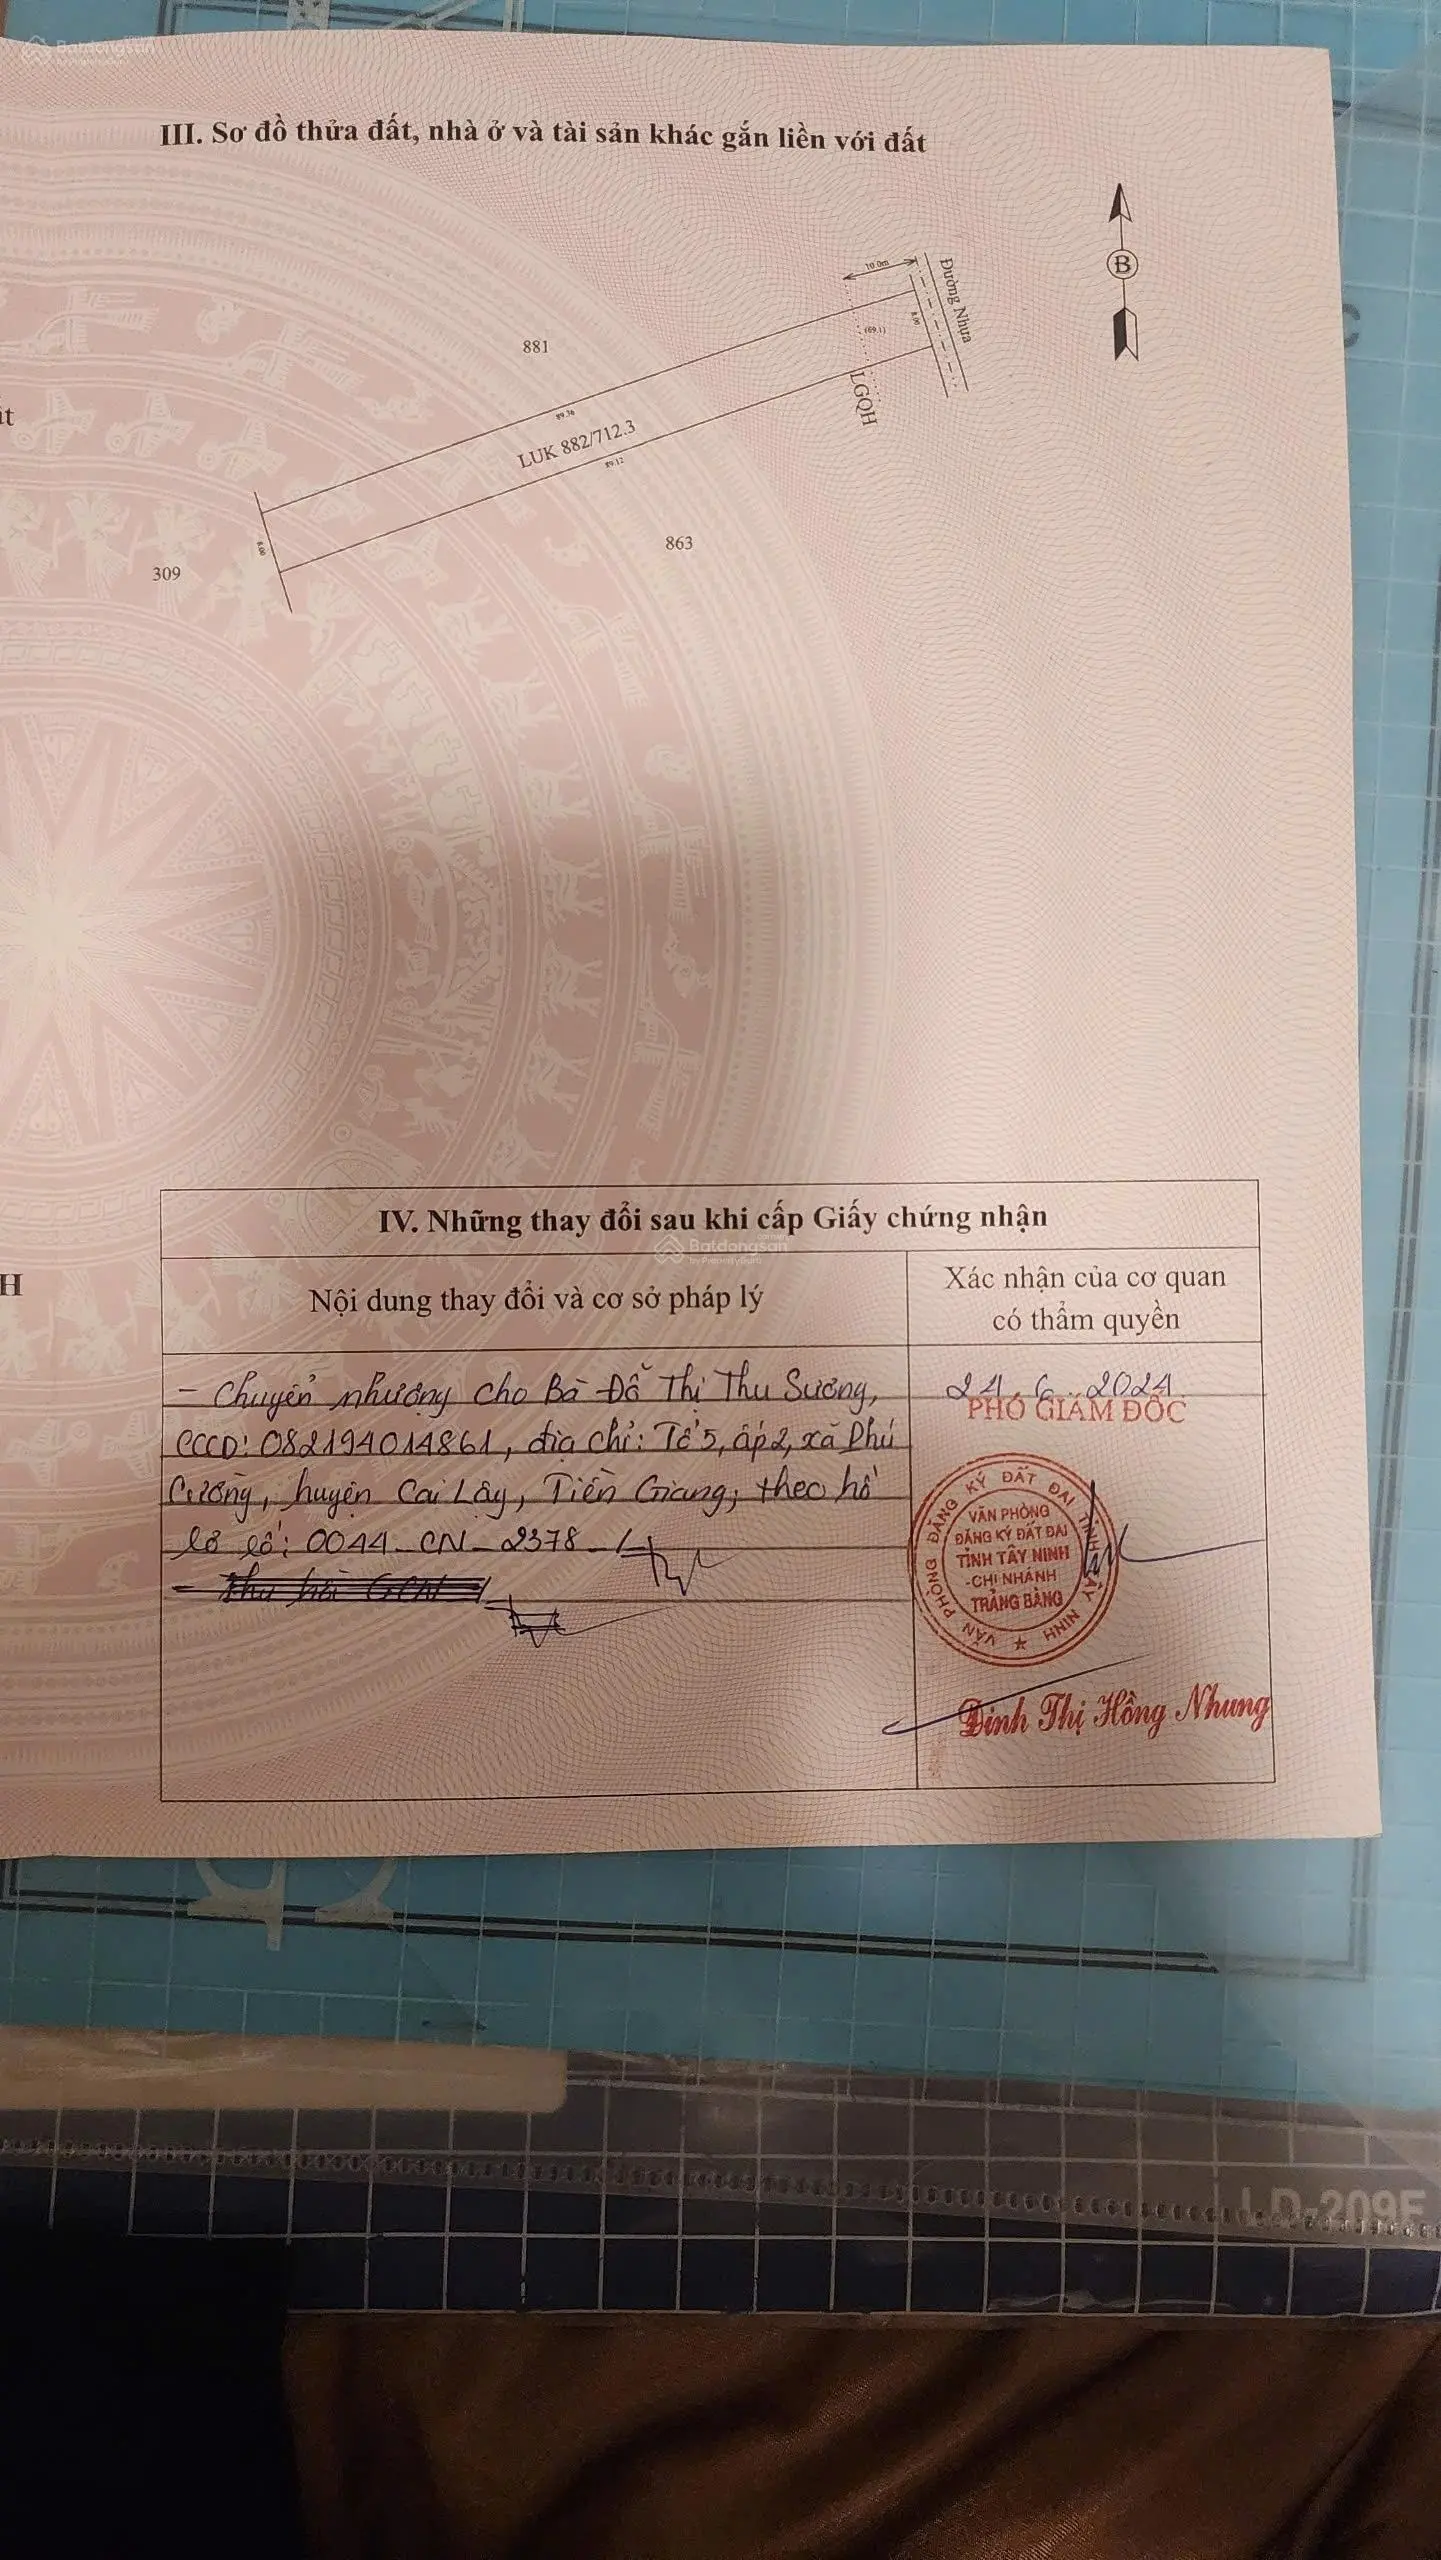 Batdongsan
by PropertyGuru
III. Sơ đồ thửa đất, nhà ở và tài sản khác gắn liền với đất
B
10.0m
Đường Nhựa
8.00
(69.1)
LGQH
881
89.36
LUK 882/712.3
89.12
ất
8.00
309
863
IV. Những thay đổi sau khi cấp Giấy chứng nhận
Batdongsan
by PropertyGuru
H
Nội dung thay đổi và cơ sở pháp lý
Xác nhận của cơ quan
có thẩm quyền
- Chuyển nhượng cho Bà Đỗ Thị Thu Sương,
CCCD: 082194014861, địa chỉ: Tổ 5, ấp 2, xã Phú
Cường, huyện Cai Lậy, Tiền Giang, theo hồ
sơ số: 0044-CN-2378-/
- Thu hồi GCN
24.6.2024
PHÓ GIÁM ĐỐC
VĂN PHÒNG ĐĂNG KÝ ĐẤT ĐAI TỈNH TÂY NINH
VĂN PHÒNG
ĐĂNG KÝ ĐẤT ĐAI
TỈNH TÂY NINH
-CHI NHÁNH
TRẢNG BÀNG
Đinh Thị Hồng Nhung
LD-209F